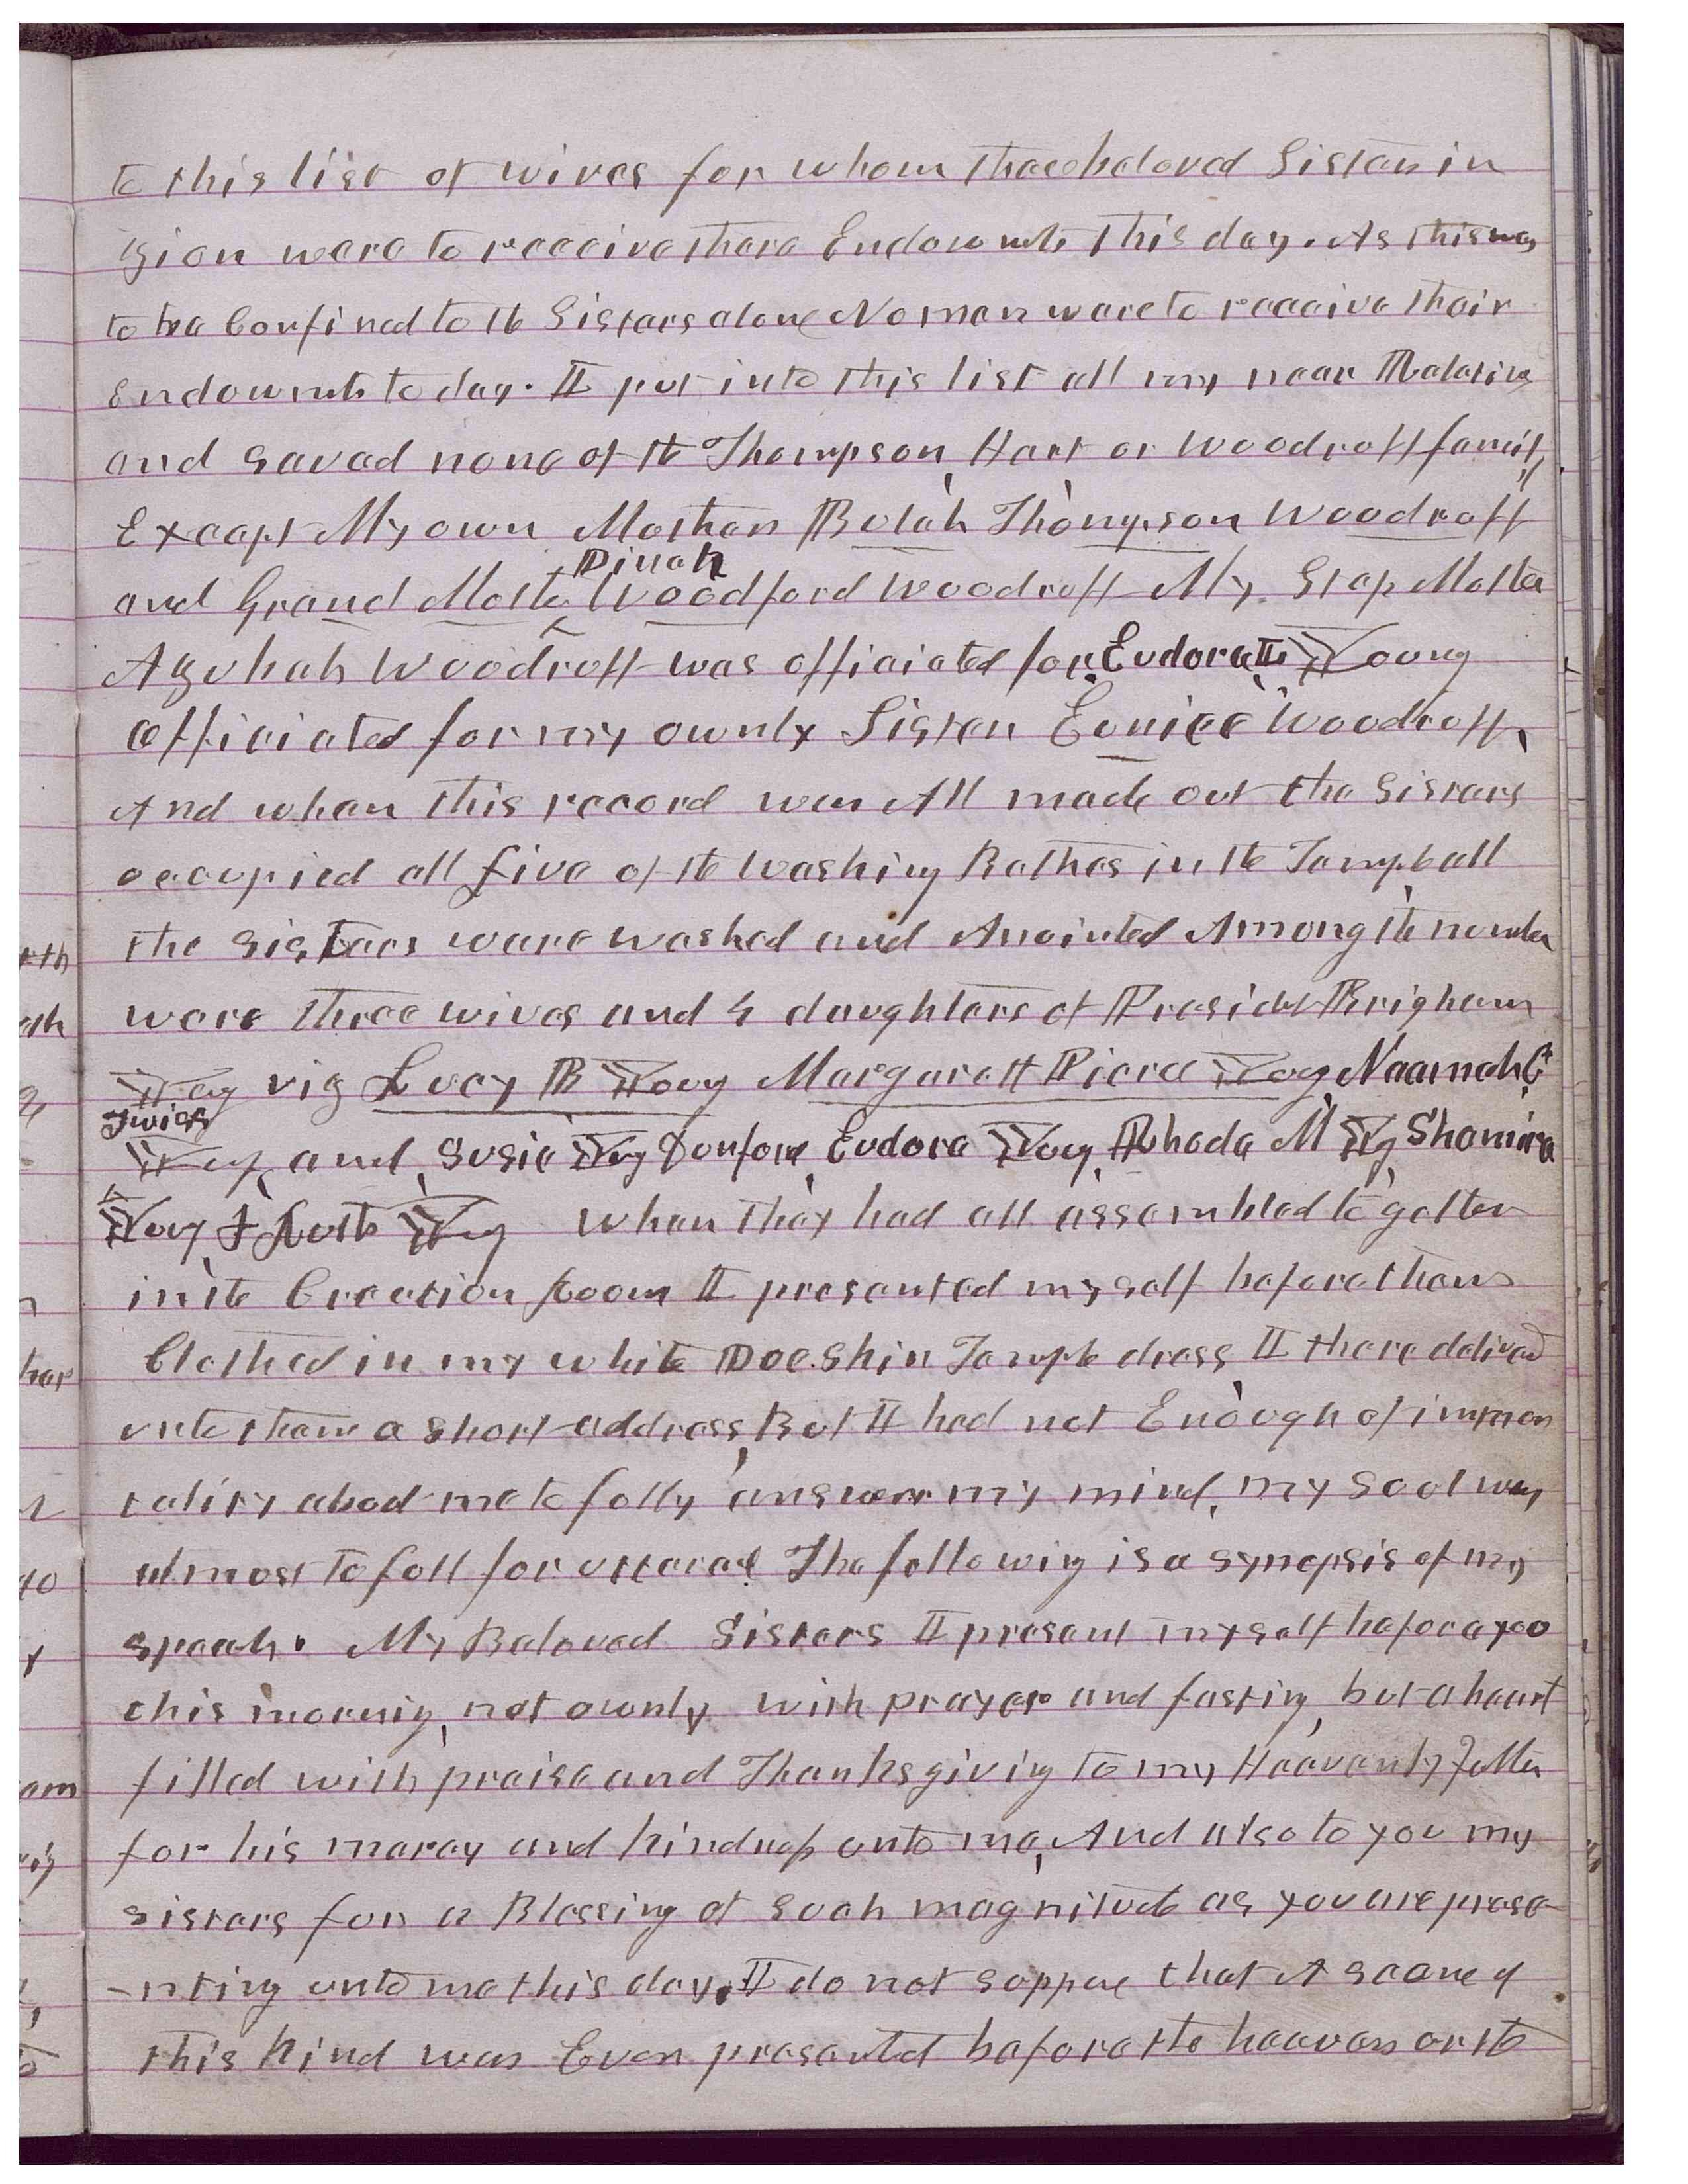 to this list of wives for whom these beloved Sisters in
Zion were to receive there Endowmts this day. As this was
to be Confined to the Sisters alone No men were to receive their
Endowmts to day. I put into this list all my near Relatives
and saved none of the Thompson, Hart or Woodruff family
Except My own Mother Bulah Thompson Woodruff
Dinah
and Grand Mother Woodford Woodruff My Step Mother
Azubah Woodruff was officiated for. Eudora Young
officiated for my ownly Sister Eunice Woodruff,
And when this record was All made out the Sisters
occupied all five of the Washing Bathes in the Temple all
the Sisters were washed and Anointed Among the number
were three wives and 4 daughters of Presidet Brigham
Young viz Lucy B Young Margarett Pierce Young, Naamah C
Twiss
Young, and Susie Young Dunford Eudora Young, Rhoda M Young Shamira
Young & Ruth Young When they had all assembled to gether
in the Creation Room I presented myself before them
Clothed in my white Doe Skin Temple dress I there deliverd
unto them a short address, But I had not Enough of immor
tality about me to fully answer my mind, my soul was
almost to full for utterance The following is a synopsis of my
speech. My Beloved Sisters I present myself before you
this morning, not ownly with prayer and fasting, but a heart
filled with praise and Thanksgiving to my Heavenly Father
for his mercy and kindness unto me, And also to you my
sisters for a Blessing of such magnitude as you are prese-
-nting unto me this day. I do not suppose that A scene of
this kind was Ever presented before the heavens or the